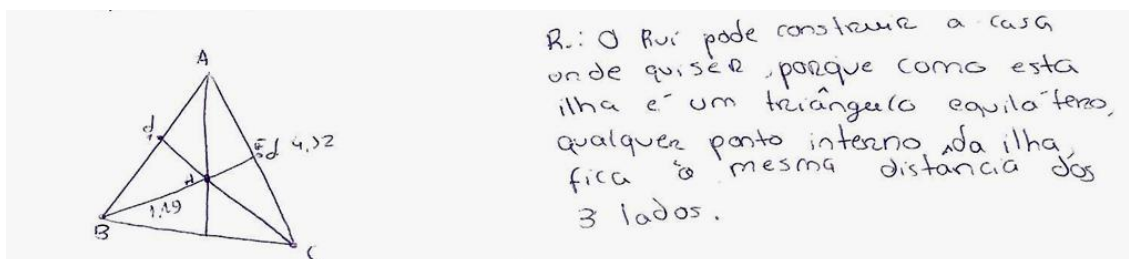 A
d
d 4,32
1,19
B
C
R.: O Rui pode construir a casa
onde quiser, porque como esta
ilha é um triângulo equilátero,
qualquer ponto interno da ilha,
fica à mesma distância dos
3 lados.